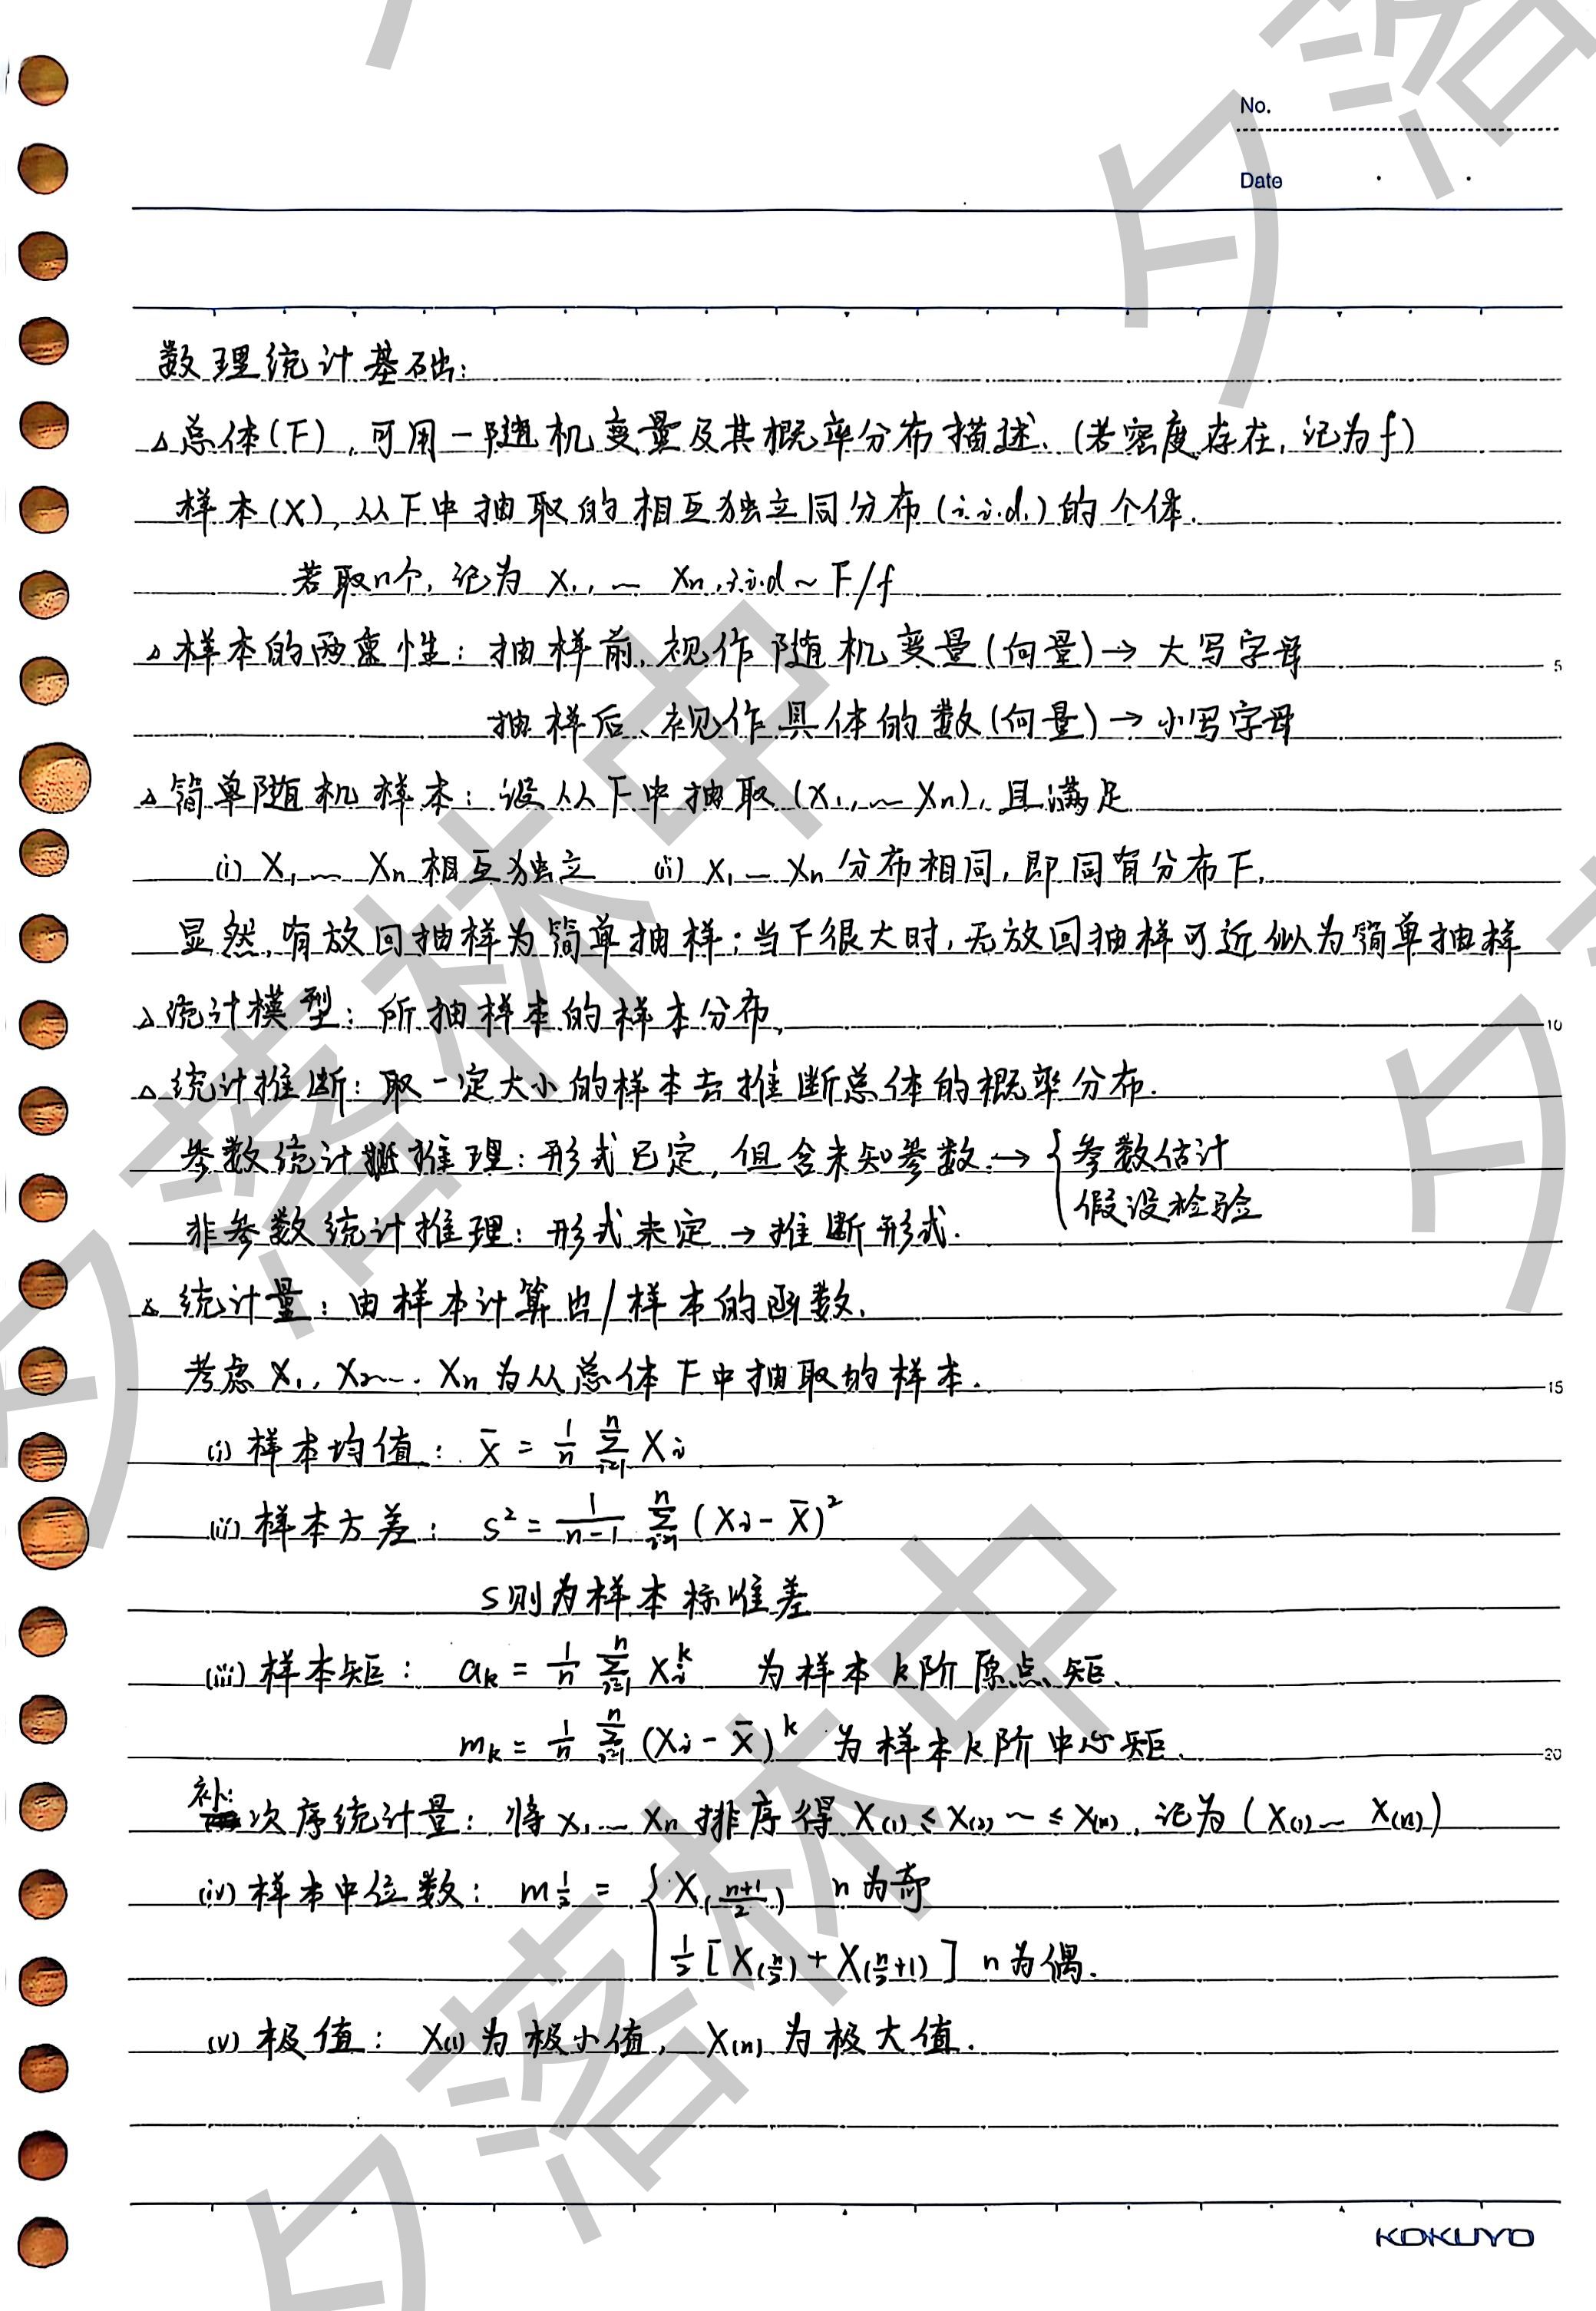 No.
Date
数理统计基础:
△总体(F),可用一随机变量及其概率分布描述、(若密度存在,记为f)
样本(X),从F中抽取的相互独立同分布(i.i.d.)的个体.
若取n个,记为 X₁, … Xn, i.i.d ~ F/f
△样本的两重性: 抽样前,视作随机变量(向量)→ 大写字母
5
抽样后、视作具体的数(向量)→ 小写字母
△简单随机样本: 设从F中抽取(X₁, … Xn),且满足
(i) X₁ … Xn 相互独立 (ii) X₁ … Xn 分布相同,即同有分布F.
显然,有放回抽样为简单抽样;当F很大时,无放回抽样可近似为简单抽样
△统计模型: 所抽样本的样本分布,
10
△统计推断: 取一定大小的样本去推断总体的概率分布.
参数统计推理: 形式已定,但含未知参数→ { 参数估计
假设检验
非参数统计推理: 形式未定 → 推断形式.
△统计量: 由样本计算出/样本的函数.
考虑 X₁, X₂ … Xn 为从总体F中抽取的样本.
15
(i) 样本均值: X̄ = 1/n Σ_{i=1}^{n} Xi
(ii) 样本方差: S² = 1/(n-1) Σ_{i=1}^{n} (Xi - X̄)²
S则为样本标准差
(iii) 样本矩: ak = 1/n Σ_{i=1}^{n} Xi^k 为样本k阶原点矩、
mk = 1/n Σ_{i=1}^{n} (Xi - X̄)^k 为样本k阶中心矩、
20
补:
次序统计量: 将 X₁ … Xn 排序得 X(1) ≤ X(2) … ≤ X(n), 记为 (X(1) … X(n))
(iv) 样本中位数: m½ = { X((n+1)/2) n为奇
½ [X(n/2) + X(n/2+1)] n为偶.
(v) 极值: X(1) 为极小值, X(n) 为极大值.
KOKUYO
夕落林中
夕落林中
夕落
夕